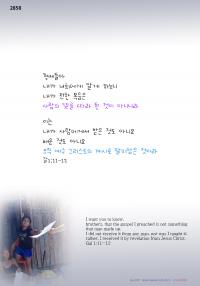 2858
형제들아
내가 너희에게 알게 하노니
내가 전한 복음은
사람의 뜻을 따라 된 것이 아니니라
이는
내가 사람에게서 받은 것도 아니요
배운 것도 아니요
오직 예수 그리스도의 계시로 말미암은 것이라
갈1:11-12
I want you to know,
brothers, that the gospel I preached is not something
that man made up.
I did not receive it from any man, nor was I taught it;
rather, I received it by revelation from Jesus Christ.
Gal 1:11-12